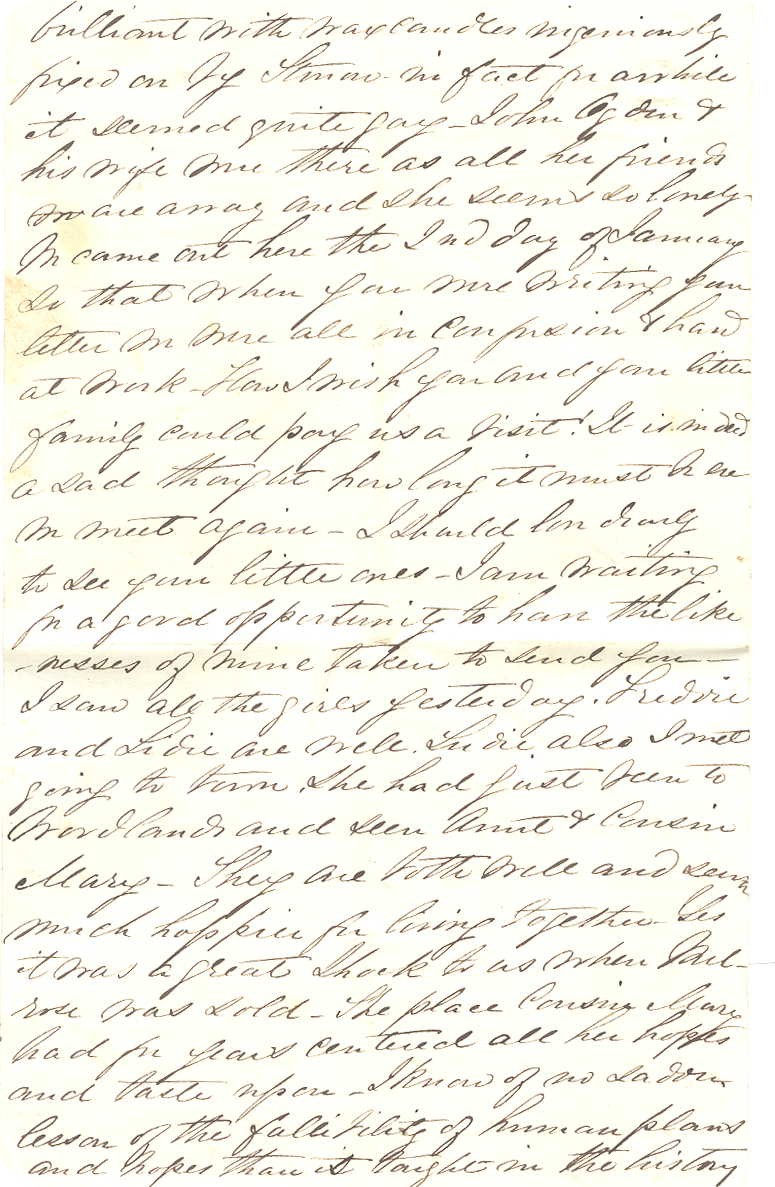 brilliant with wax candles ingeniously
fixed on by Simon - in fact for awhile
it seemed quite gay - John Ogden &
his wife were there as all her friends
were away and she seems so lonely -
We came out here the 2nd day of January
so that when you were writing your
letter we were all in confusion & hard
at work - How I wish you and your little
family could pay us a visit! It is indeed
a sad thought how long it must be ere
we meet again - I should love dearly
to see your little ones - I am waiting
for a good opportunity to have the like
-nesses of mine taken to send you -
I saw all the girls yesterday. Freddie
and Lidie are well. Ludie also I met
going to town. She had just been to
Woodlands and seen Aunt & Cousin
Mary - They are both well and seem
much happier for living together - Yes
it was a great shock to us when Mel-
rose was sold - The place Cousin Mary
had for years centered all her hopes
and taste upon - I know of no sadder
lesson of the fallibility of human plans
and hopes than is taught in the history